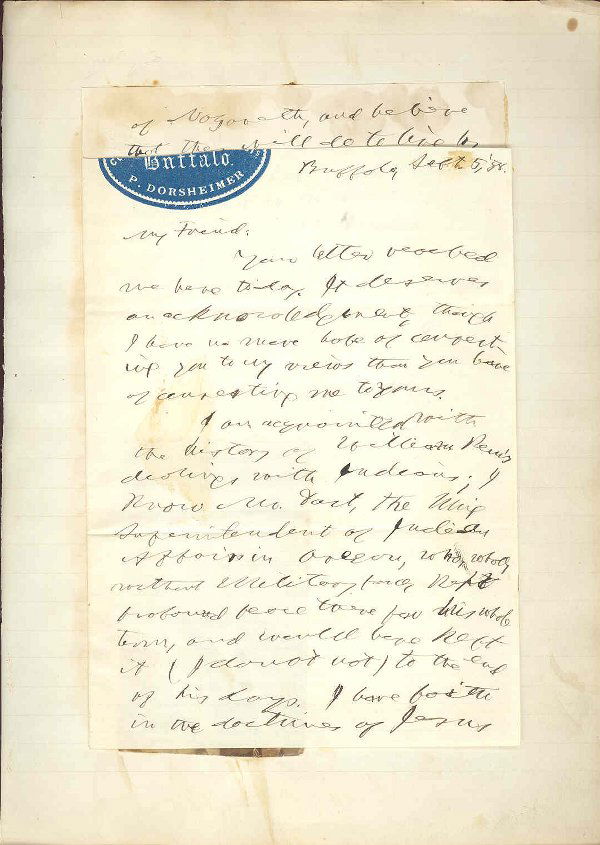 of Nazareth, and believe
that they will do to live by
Buffalo
P. DORSHEIMER
Buffalo, Sept 5,
My Friend:
Your letter reached
me here to-day. It deserves
an acknowledgment, though
I have no more hope of convert-
ing you to my views than you have
of converting me to yours.
I am acquainted with
the history of William Penn's
dealings with Indians; I
know Mr. the
Superintendent of Indian
Affairs in Oregon, who, wholly
without Military force, kept
profound peace there for his whole
term, and would have kept
it (I doubt not) to the end
of his days. I have faith
in the doctrines of Jesus